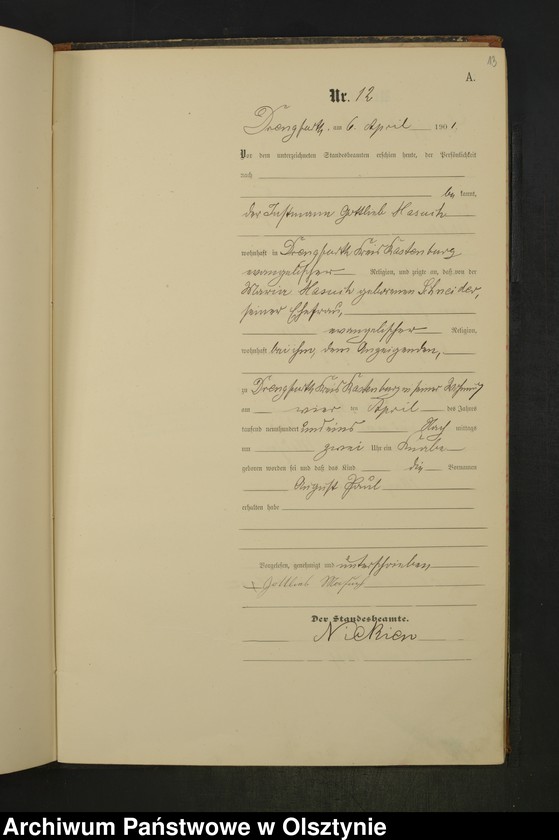 13
A.
Nr. 12
Drengfurth, am 6. April 1901.
Vor dem unterzeichneten Standesbeamten erschien heute, der Persönlichkeit
nach
be kannt,
der Instmann Gottlieb
wohnhaft in Drengfurth Kreis Rastenburg
evangelischer Religion, und zeigte an, daß von der
Maria geborenen Schneider,
seiner Ehefrau,
evangelischer Religion,
wohnhaft bei ihm, dem Anzeigenden,
zu Drengfurth Kreis Rastenburg in seiner Wohnung
am vier ten April des Jahres
tausend neunhundert und eins Nach mittags
um zwei Uhr ein Knabe
geboren worden sei und daß das Kind die Vornamen
August Paul
erhalten habe
Vorgelesen, genehmigt und unterschrieben
Gottlieb
Der Standesbeamte.
Archiwum Państwowe w Olsztynie